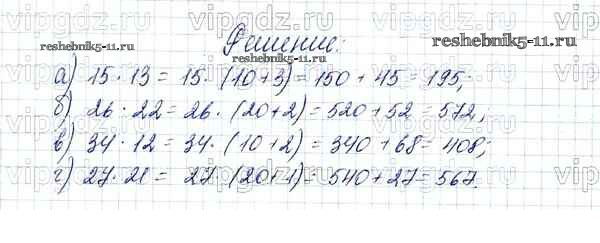 vipgdz.ru vipgdz.ru vipgdz.ru
Решение:
reshebnik5-11.ru
reshebnik5-11.ru
а) 15 · 13 = 15 · (10+3) = 150 + 45 = 195;
б) 26 · 22 = 26 · (20+2) = 520 + 52 = 572;
в) 34 · 12 = 34 · (10+2) = 340 + 68 = 408;
г) 27 · 21 = 27 · (20+1) = 540 + 27 = 567.